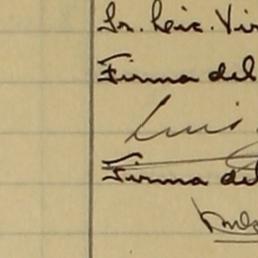 Sr. Leic. Vir
Firma del
Luis
Firma del